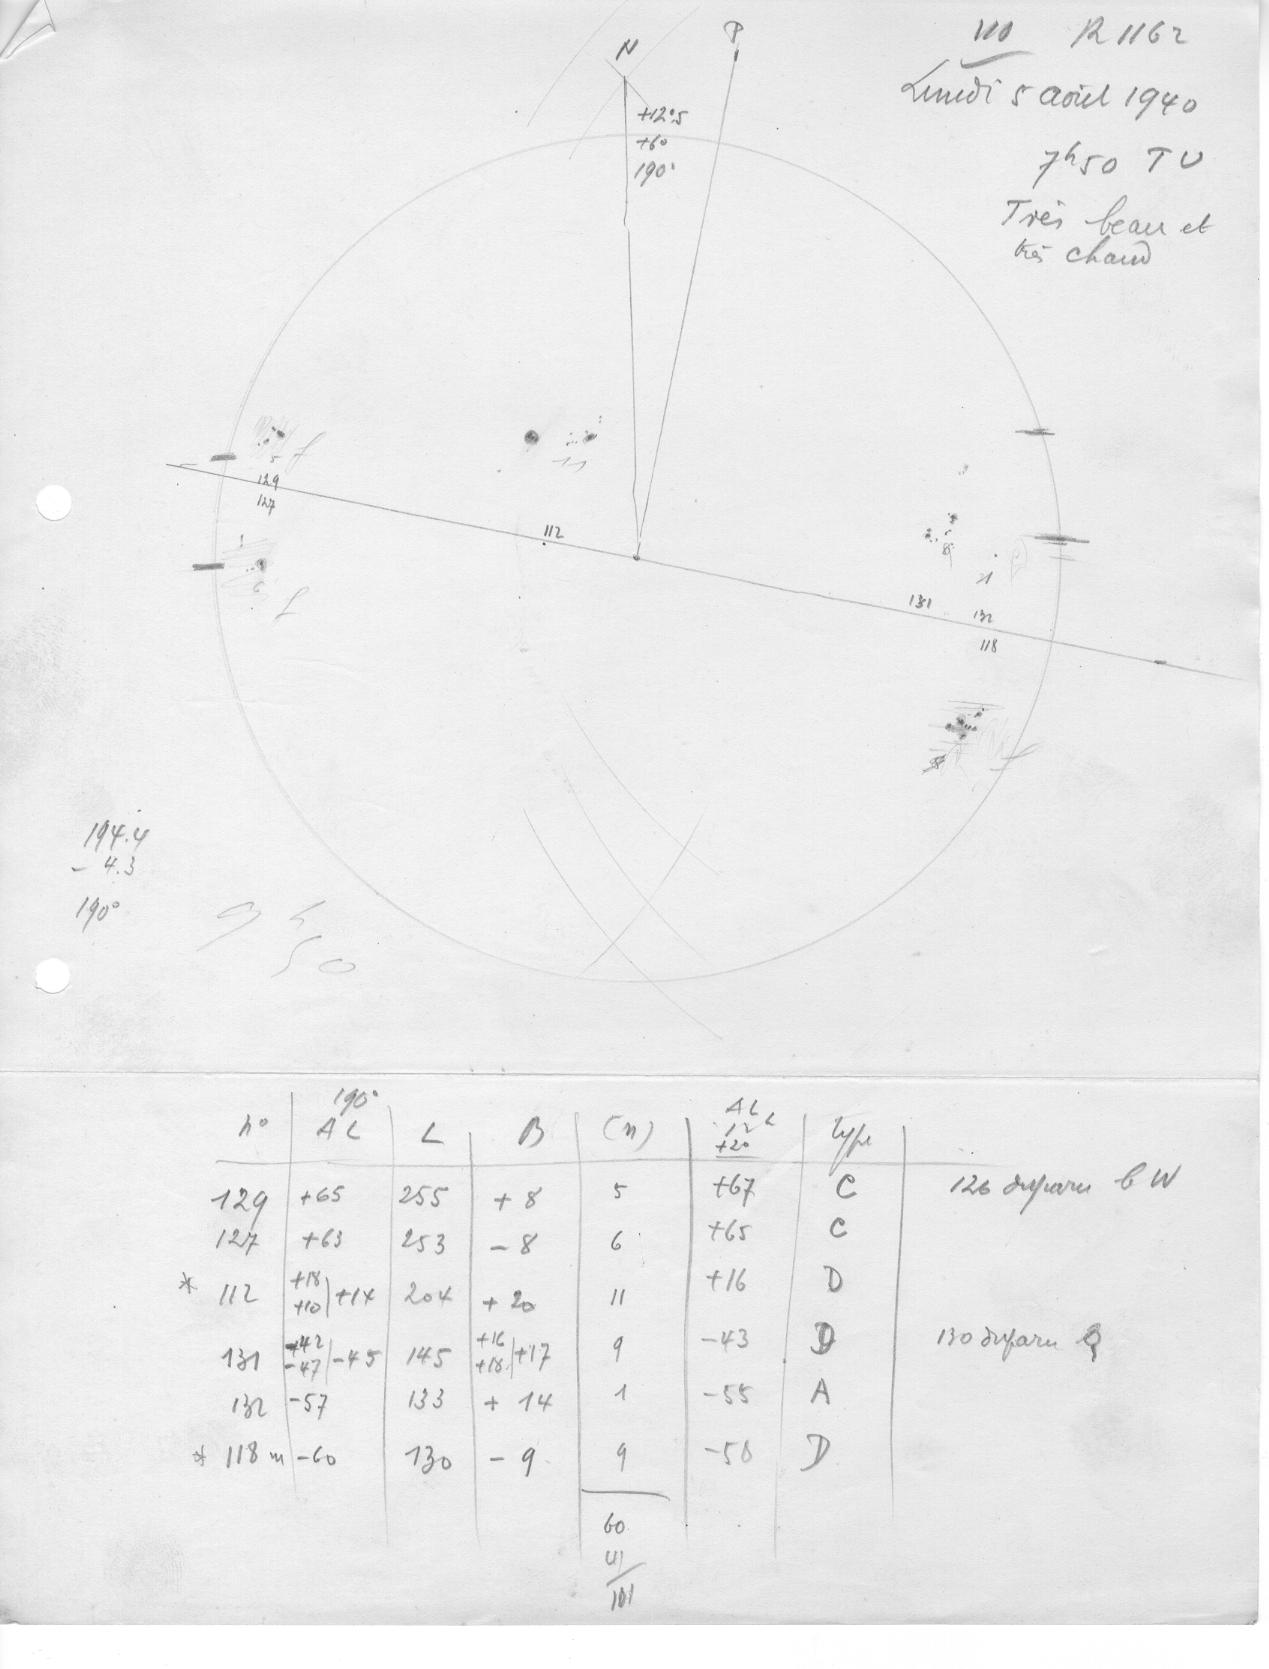 111 R 1162
Lundi 5 août 1940
7h50 TU
Très beau et
très chaud
N P
+12°5
+6°
190°
5
129
127
112
11
6
8
1
131
132
118
194.4
- 4.3
190°
9 h
50
190°
n° AL L B (n) AL type
12
+20
129 +65 255 +8 5 +67 C 126 disparu b W
127 +63 253 -8 6 +65 C
* 112 +18 +10 +14 204 +20 11 +16 D
131 -42 -47 -45 145 +16 +18 +17 9 -43 D 130 disparu
132 -57 133 +14 1 -55 A
* 118 m -60 130 -9 9 -58 D
60
41
101